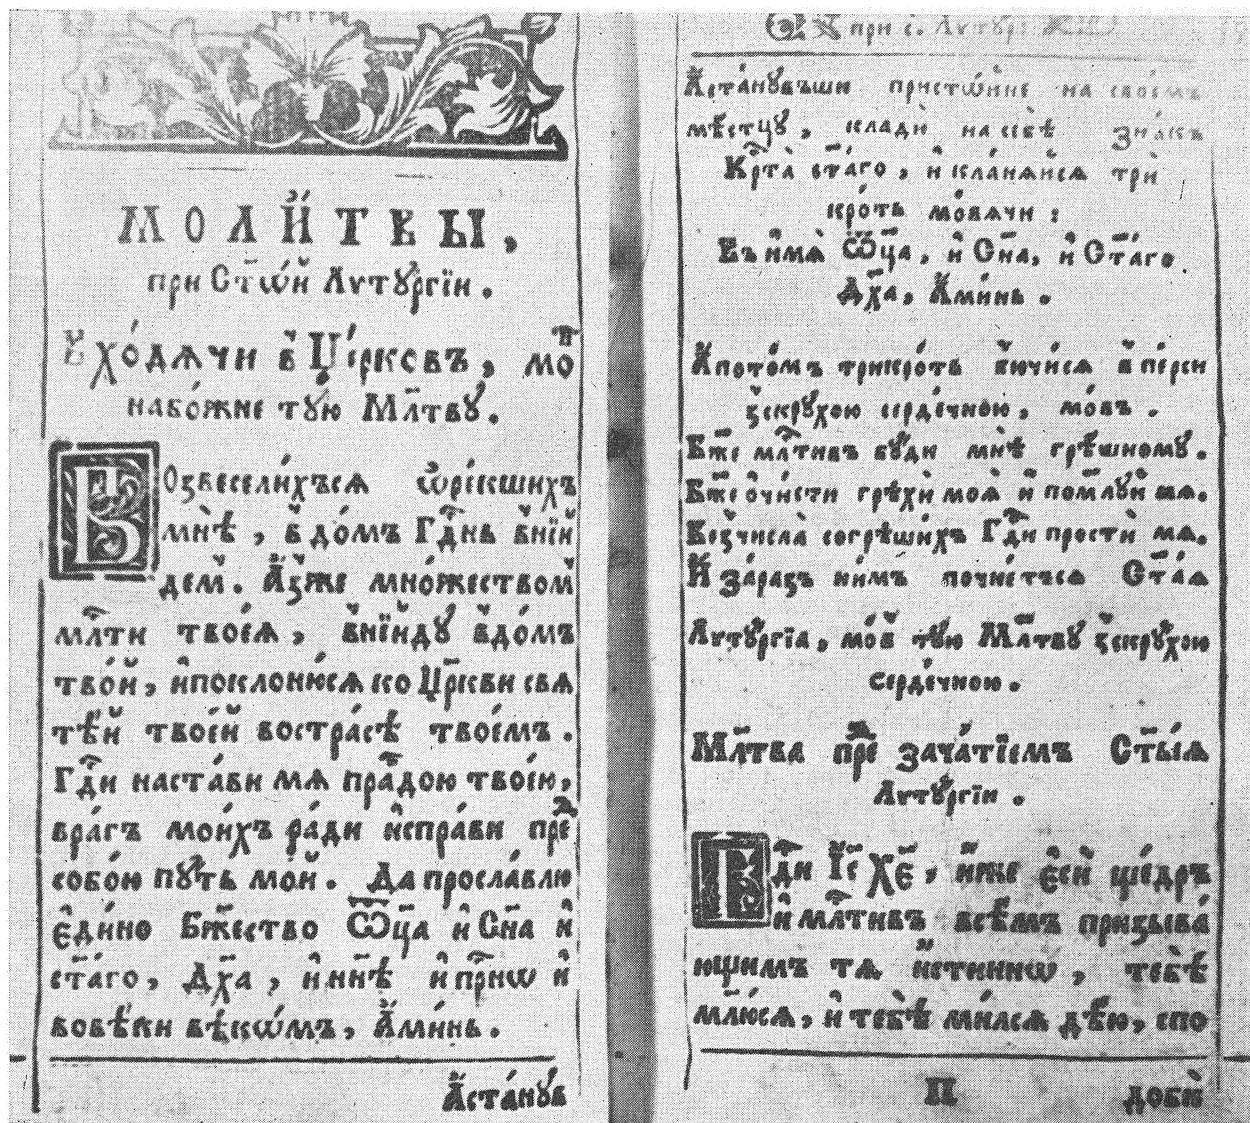 МОЛИ́ТВЫ,
при Ст҃ѡ́й Лѵтꙋргїи.
Ꙋхо́дѧчи в̾ Це́рковъ, мо
набо́жне тꙋ́ю Мл҃твꙋ́.
Возвеселиⷯ́ъсѧ ѡ҆ре́кшихъ
мнѣ̀, в̾ до́мъ Гдⷭ҇нь в̾нїи
дем̾. А҆́з̾же мно́жеством̾
млⷭ҇ти твоеѧ̀, в̾нїи́дꙋ в̾до́мъ
тво́й, и҆поклоню́сѧ ко Цр҃кви свѧ
тѣ́й твое́й востра́сѣ твое́мъ.
Гдⷭ҇и наста́ви мѧ пра́вдою твое́ю,
вра́гъ мои́хъ ра́ди и҆спра́ви преⷣ
собо́ю пꙋ́ть мо́й. Да просла́влю
є҆ди́но Бж҃ество Ѿц҃а и҆ Сн҃а и҆
ст҃а́го, Дх҃а, и҆ нн҃ѣ и҆ при́снѡ и҆
вовѣ́ки вѣкѡ́мъ, А҆ми́нь.
А҆ста́нꙋв
при с. Лѵтꙋр:
А҆ста́нꙋвъши присто́йне на свое́мъ
мѣ́стцꙋ, клади̾ на себѣ̀ зна́къ
Крⷭ҇та̀ ст҃а́го, и҆ кла́нѧйсѧ три̾
кро́ть мо́вѧчи:
Въ и҆́мѧ Ѿц҃а, и҆ Сн҃а, и҆ Ст҃а́го
Дх҃а, А҆ми́нь.
А҆пото́мъ трикро́ть бю́чисѧ в̾ пе́рси
з̾скрꙋ́хою серде́чною, мо́въ.
Бж҃е млⷭ҇тивъ бꙋ́ди мнѣ̀ грѣ́шномꙋ.
Бж҃е ѻ҆чи́сти грѣхи̾ моѧ̀ и҆ поми́лꙋй мѧ.
Без̾числа̀ согрѣши́хъ Гдⷭ҇и прости̾ мѧ.
И҆ за́разъ ни́мъ почне́тъсѧ Ст҃а́ѧ
Лѵтꙋргїа, мо́в̾ тꙋ́ю Мл҃твꙋ з̾скрꙋ́хою
серде́чною.
Мл҃тва преⷣ зача́тїемъ Ст҃ы́ѧ
Лѵтꙋргїи.
Гдⷭ҇и І҆с҃ Хе҃, и҆́же є҆сѝ ще́дръ
и҆ млⷭ҇тивъ всѣ́мъ призыва́
ющимъ тѧ и҆́стиннѡ, тебѣ̀
млю́сѧ, и҆ тебѣ̀ ми́лсѧ дѣ́ю, спо
П
доби̾